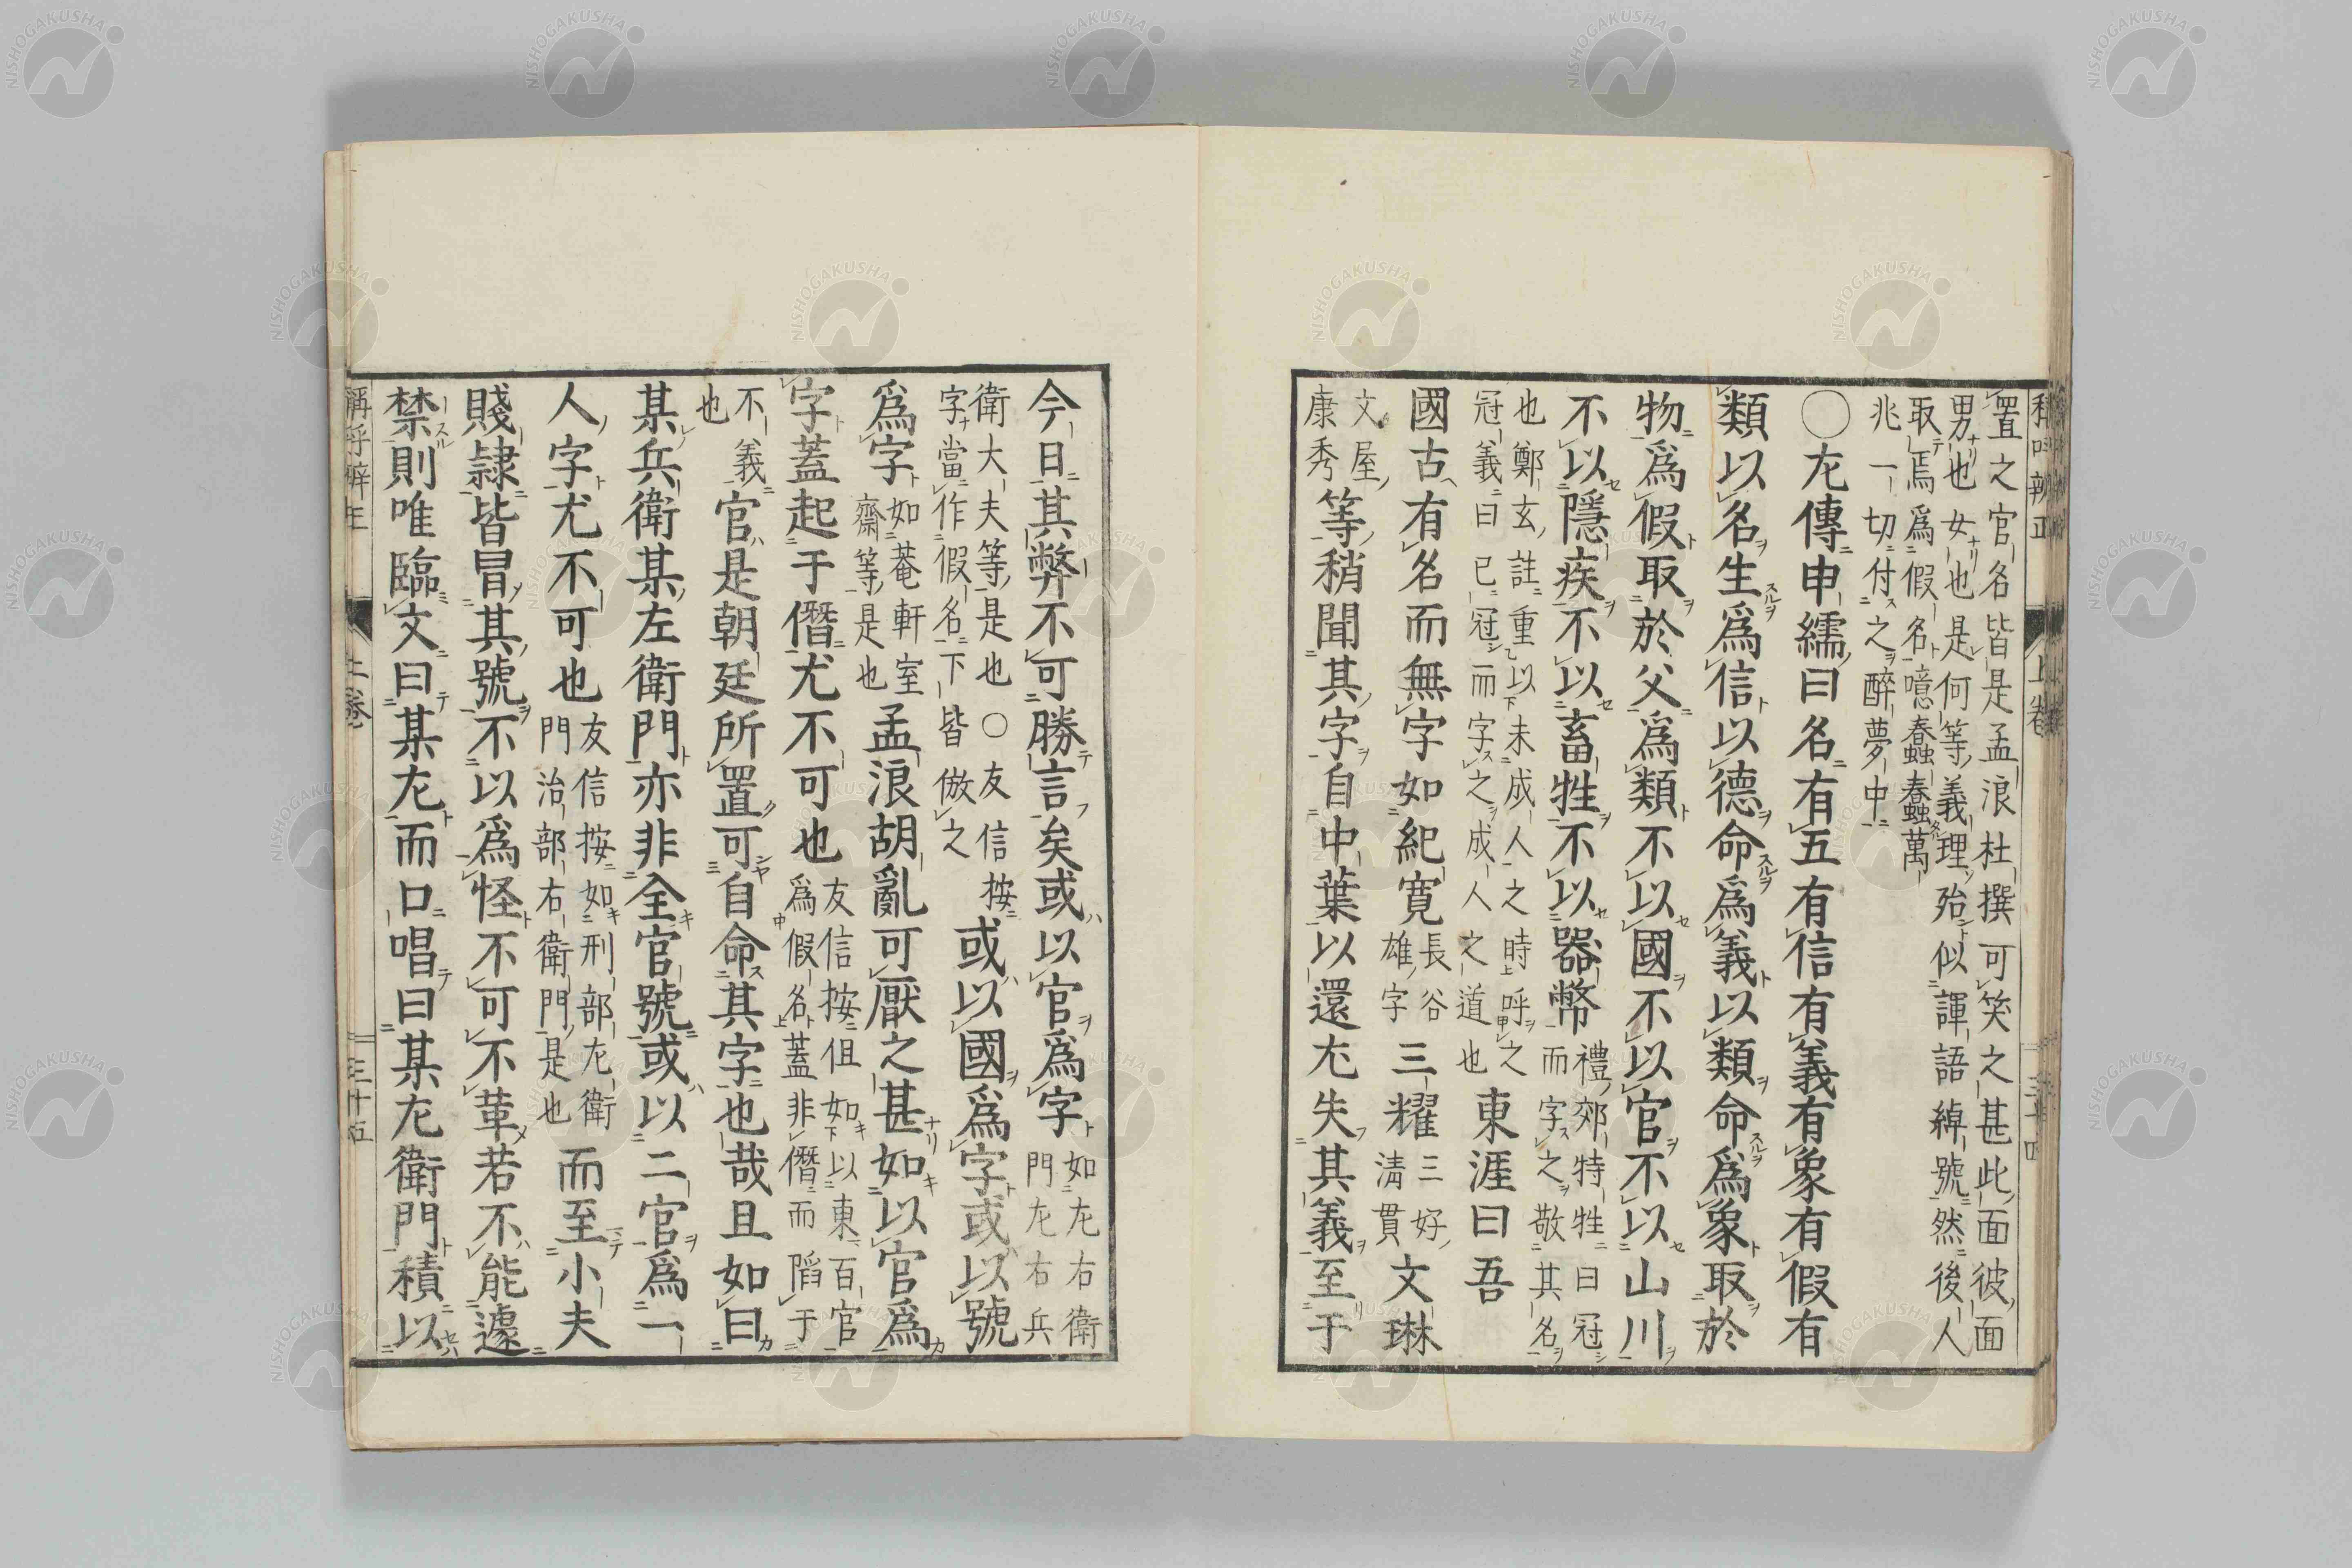 置之官名皆是孟浪杜撰可笑之甚此面彼面
男也女也是何等義理殆似諢語綽號然後人
取焉爲假名噫蠢蠢萬
兆一切付之醉夢中
〇左傳申繻曰名有五有信有義有象有假有
類以名生爲信以德命爲義以類命爲象取於
物爲假取於父爲類不以國不以官不以山川
不以隱疾不以畜牲不以器幣
禮郊特牲曰冠
而字之敬其名
也鄭玄註重以未成人之時呼之
冠義曰已冠而字之成人之道也
東涯曰吾
國古有名而無字如紀寛
長谷
雄字
三耀
三好
淸貫
文琳
文屋
康秀
等稍聞其字自中葉以還尤失其義至于
今日其弊不可勝言矣或以官爲字
如左右衛
門左右兵
衛大夫等是也〇友信按
字當作假名下皆倣之
或以國爲字或以號
爲字
如菴軒室
齋等是也
孟浪胡亂可厭之甚如以官爲
字蓋起于僭尤不可也
友信按但如以東百官
爲假名蓋非僭而陷于
不義
也
官是朝廷所置可自命其字也哉且如曰
某兵衛某左衛門亦非全官號或以二官爲一
人字尤不可也
友信按如刑部左衛
門治部右衛門是也
而至小夫
賤隷皆冒其號不以爲怪不可不革若不能遽
禁則唯臨文曰某左而口唱曰某左衛門積以
稱呼辨正
上卷
三十五